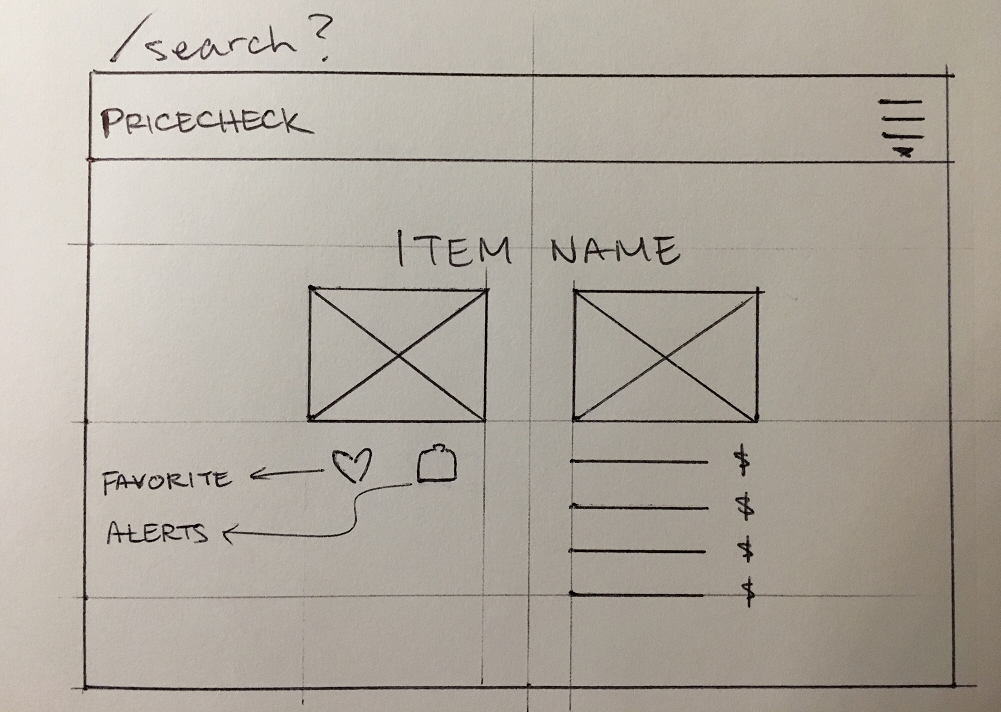 /search?
PRICECHECK
ITEM NAME
FAVORITE
$
ALERTS
$
$
$